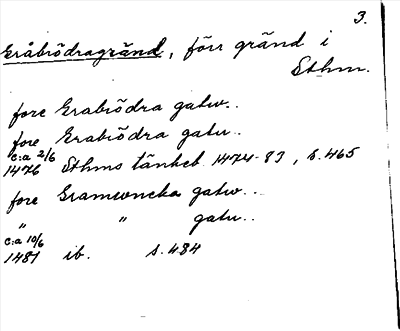 3.
Gråbrödragränd, förr gränd i
Sthm.
fore Grabrödra gatw..
fore Grabrödra gatu..
c:a 2/6
1476 Sthms tänkeb. 1474-83, s. 465
fore Gramwncka gatw..
" " gatu..
c:a 10/6
1481 ib. s. 484